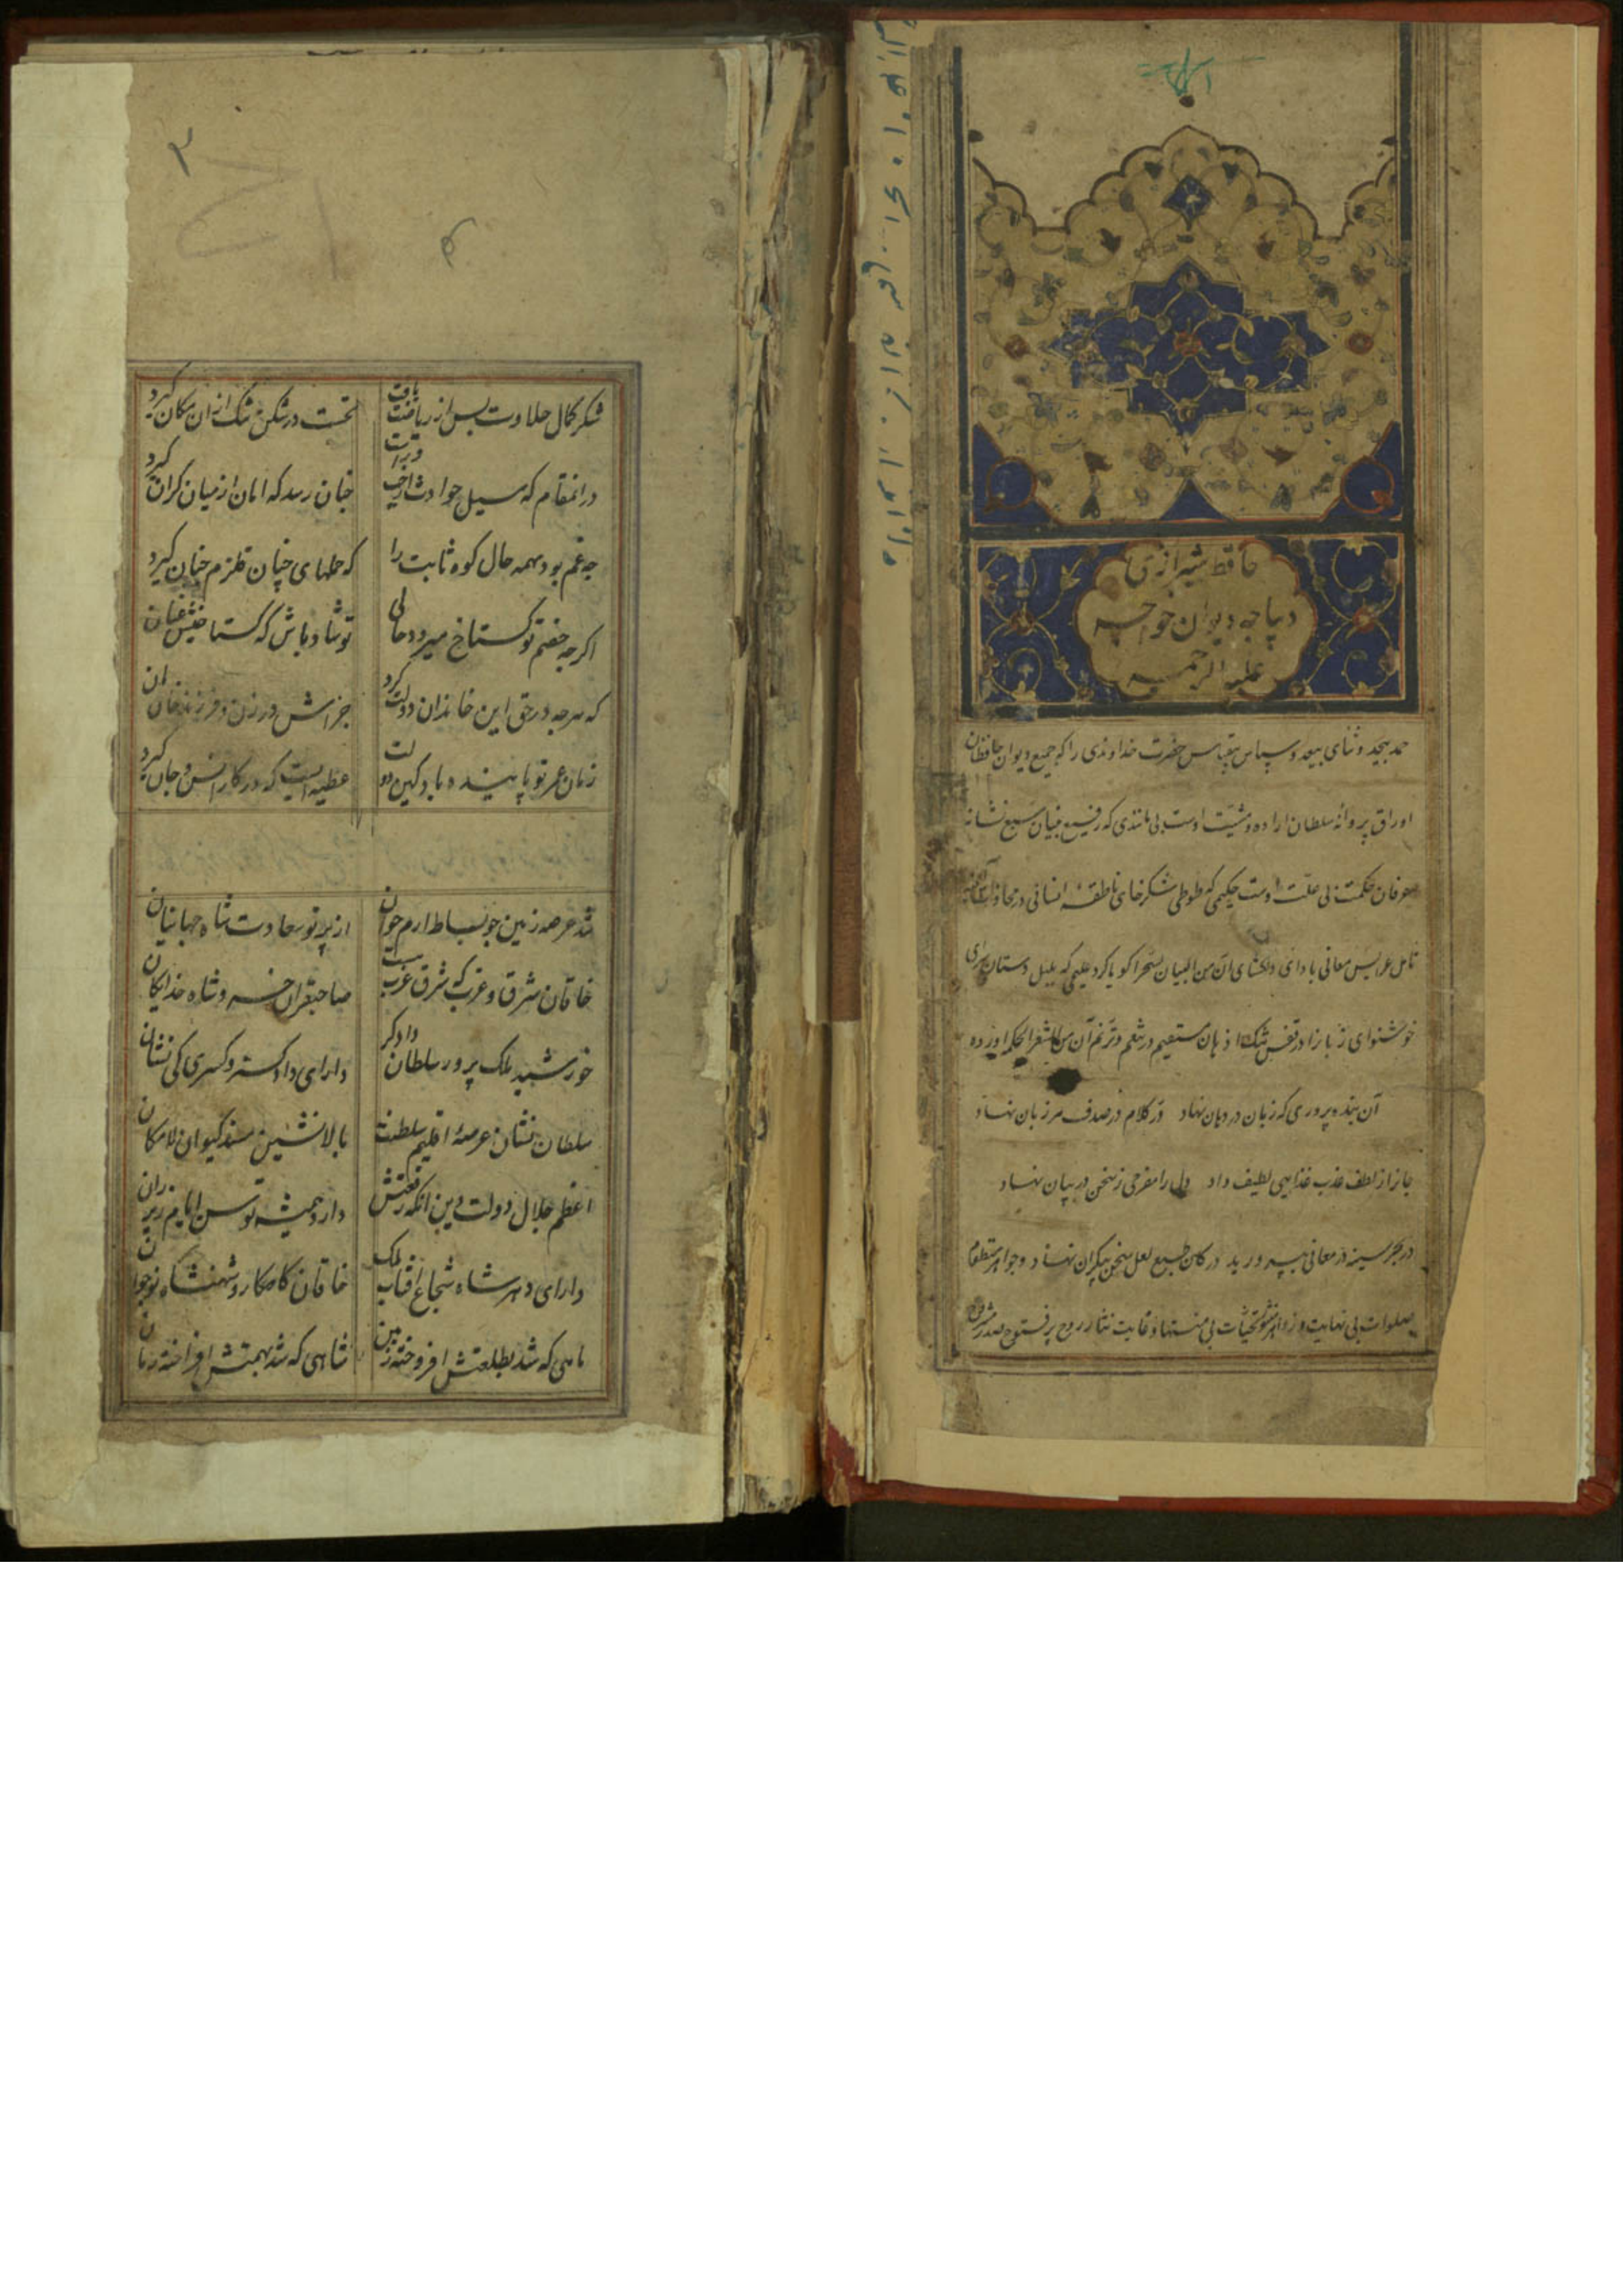 حافظ شیرازی
دیباجه دیوان خواجه
علیه الرحمه
حمد بیحد و ثنای بیعد و سپاس بیقیاس حضرت خداوندی را که جمیع دیوان حافظان
اوراق پروانهٔ سلطان اراده و مشیت اوست بی مانندی که رفیع بنیان سبع نشانه
عرفان حکمت بی علت اوست حکیمی که طوطی شکرخای ناطقهٔ انسانی در محاذات آینه
تامل عرایس معانی بادای دلکشای ان من البیان لسحرا کویا کرد علیمی که بلبل دستان سرای
خوشنوای زبانرا در قفس تنک دهان مستقیم در تنعم و ترنم آن من الشعر لحکمه اورده
آن بنده پروری که زبان در دهان نهاد در کلام در صدف هر زبان نهاد
جانرا ز لطف عذب غذاییی لطیف داد دل را مفرحی ز سخن در بیان نهاد
در بحر سینه در معانی بپرورید در کان طبع لعل سخن بیکران نهاد و جواهر منظوم
صلوات بی نهایت و زواهر منثور تحیات بی منتها و غایت نثار روح پر فتوح صدر
شکر کمال حلاوت پس از ریاضت یافت
نخست در شکن تنک از ان مکان کیرد
در انمقام که سیل حوادث از چپ و راست
چنان رسد که امان از میان کران کیرد
چه غم بود بهمه حال کوه ثابت را
که حملهای چنان قلزم چنان کیرد
اکرچه خصم تو کستاخ میرود حالی
تو شاد باش که کستاخیش عنان
که هرچه در حق این خاندان دولت کرد
جزاش در زن و فرزند خان ان
زمان عمر تو پاینده باد کین دولت
عطیه ایست که در کار انس و جان کیرد
شد عرصه زمین چو بساط ارم جوان
از پرتو سعادت شاه جهانیان
خاقان شرق و غرب که در شرق غرب
صاحبقران خسرو و شاه خدایکان
خورشید ملک پرور سلطان دادکر
دارای دادکستر و کسری کی نشان
سلطان نشان عرصهٔ اقلیم سلطنت
بالا نشین مسند کیوان لامکان
اعظم جلال دولت و دین انکه رفعتش
دارد همیشه توسن ایام زیر ران
دارای دهر شاه شجاع افتاب ملک
خاقان کامکار و شهنشاه نوجوان
ماهی که شد بطلعتش افروخته زمین
شاهی که شد بهمتش افراخته زمان